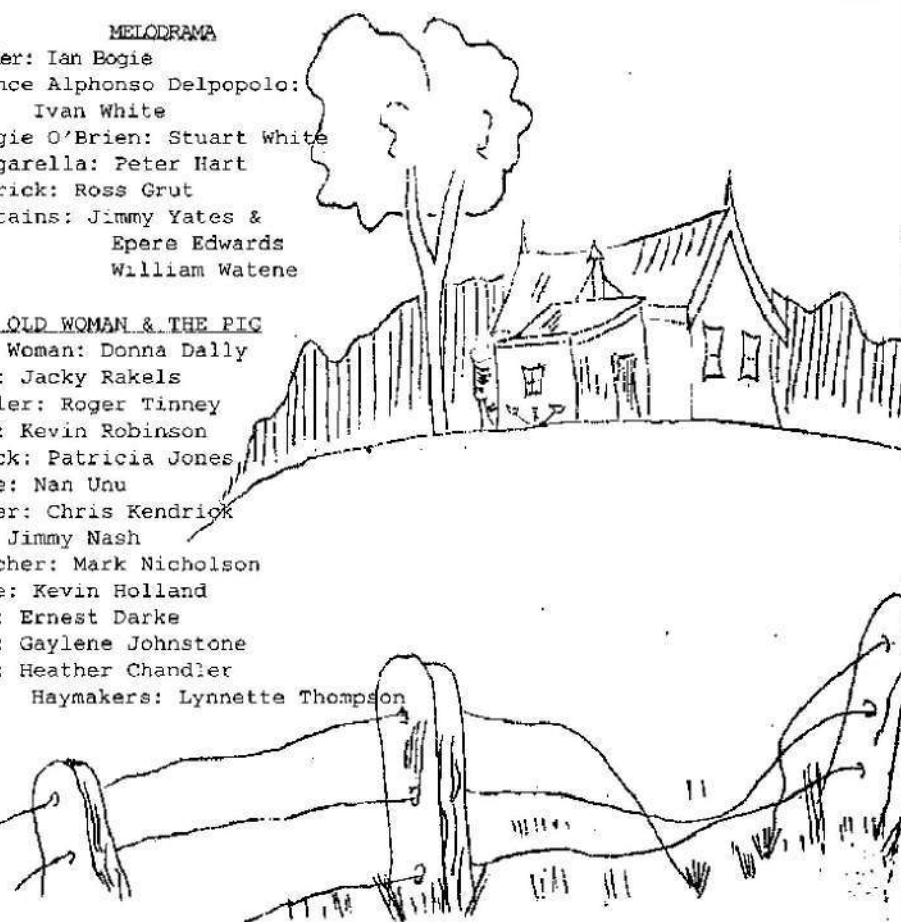 MELODRAMA
er: Ian Bogie
nce Alphonso Delpopolo:
Ivan White
gie O'Brien: Stuart White
garella: Peter Hart
rick: Ross Grut
tains: Jimmy Yates &
Epere Edwards
William Watene
OLD WOMAN & THE PIG
Woman: Donna Dally
: Jacky Rakels
ler: Roger Tinney
: Kevin Robinson
ck: Patricia Jones
e: Nan Unu
er: Chris Kendrick
Jimmy Nash
cher: Mark Nicholson
e: Kevin Holland
: Ernest Darke
: Gaylene Johnstone
: Heather Chandler
Haymakers: Lynnette Thompson